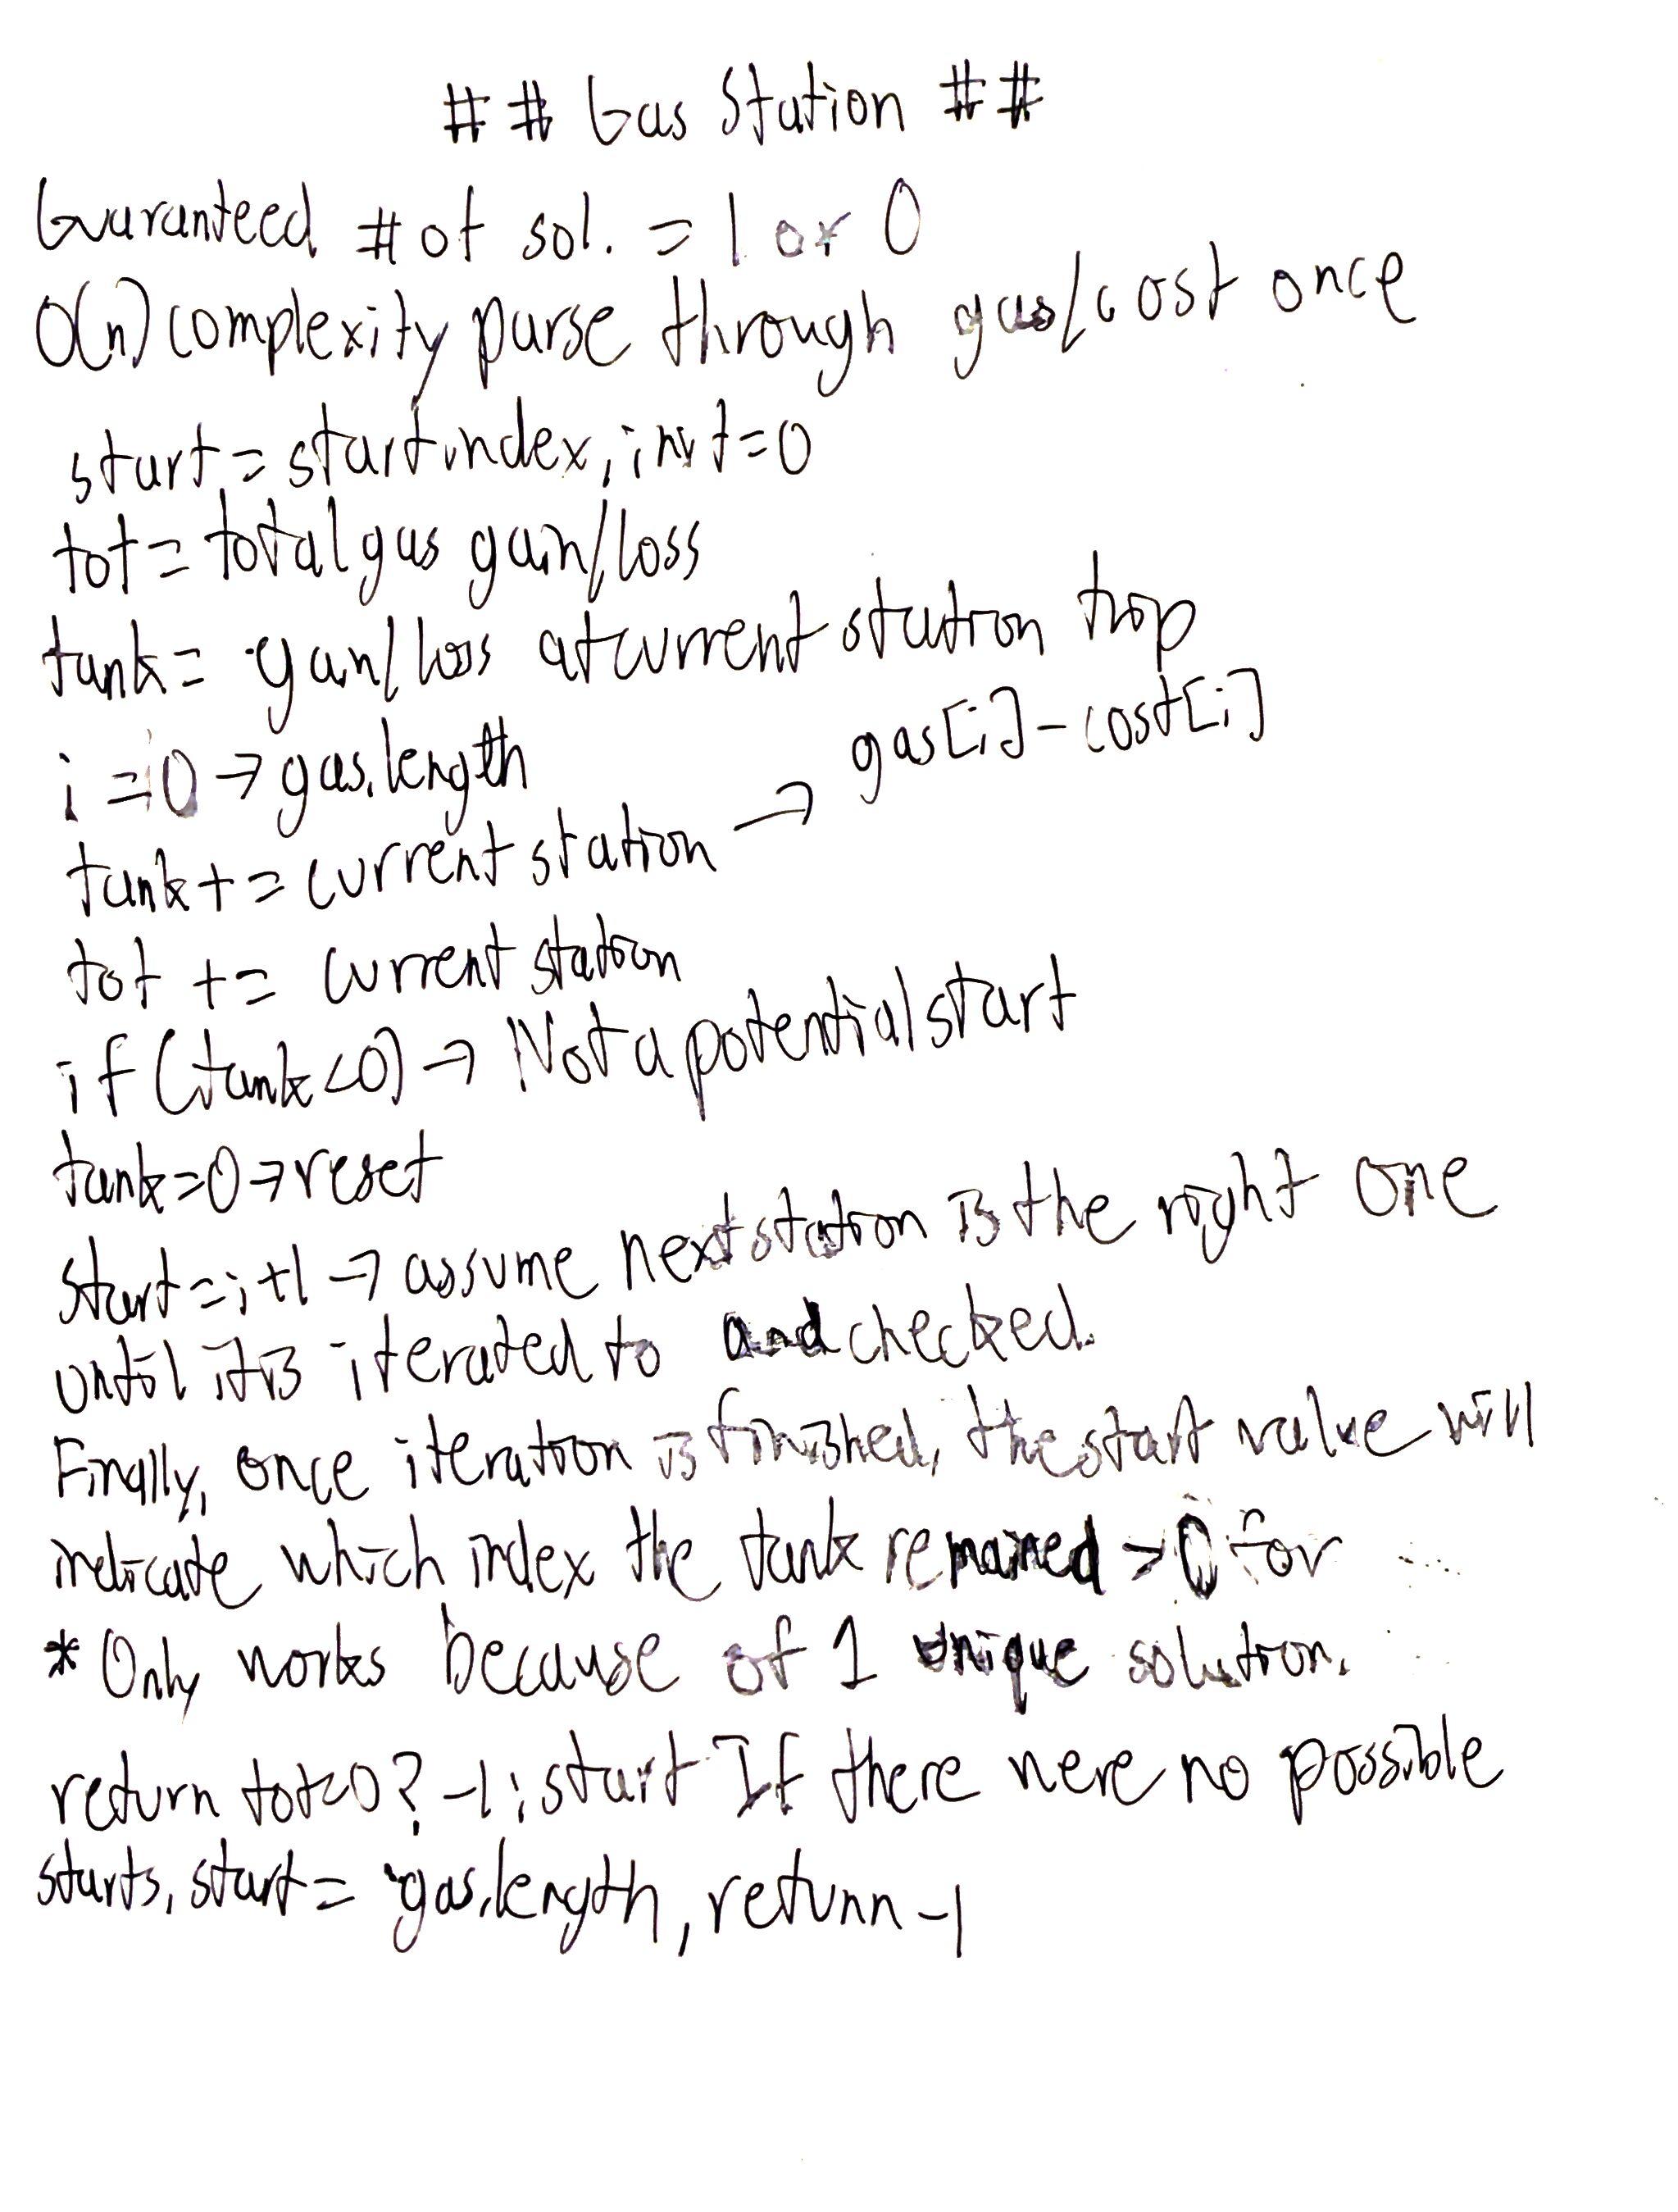 ## Gas Station ##
Guaranteed # of sol. = 1 or 0
O(n) complexity parse through gas/cost once
start = start index, init=0
tot = total gas gain/loss
tank = gain/loss at current station trip
i = 0 → gas.length
tank += current station → gas[i] - cost[i]
tot += current station
if (tank<0) → Not a potential start
tank=0 → reset
start = i+1 → assume next station is the right one
until it is iterated to and checked.
Finally, once iteration is finished, the start value will
indicate which index the tank remained >0 for
* Only works because of 1 unique solution.
return tot<0? -1 : start If there were no possible
starts, start = gas.length, return -1